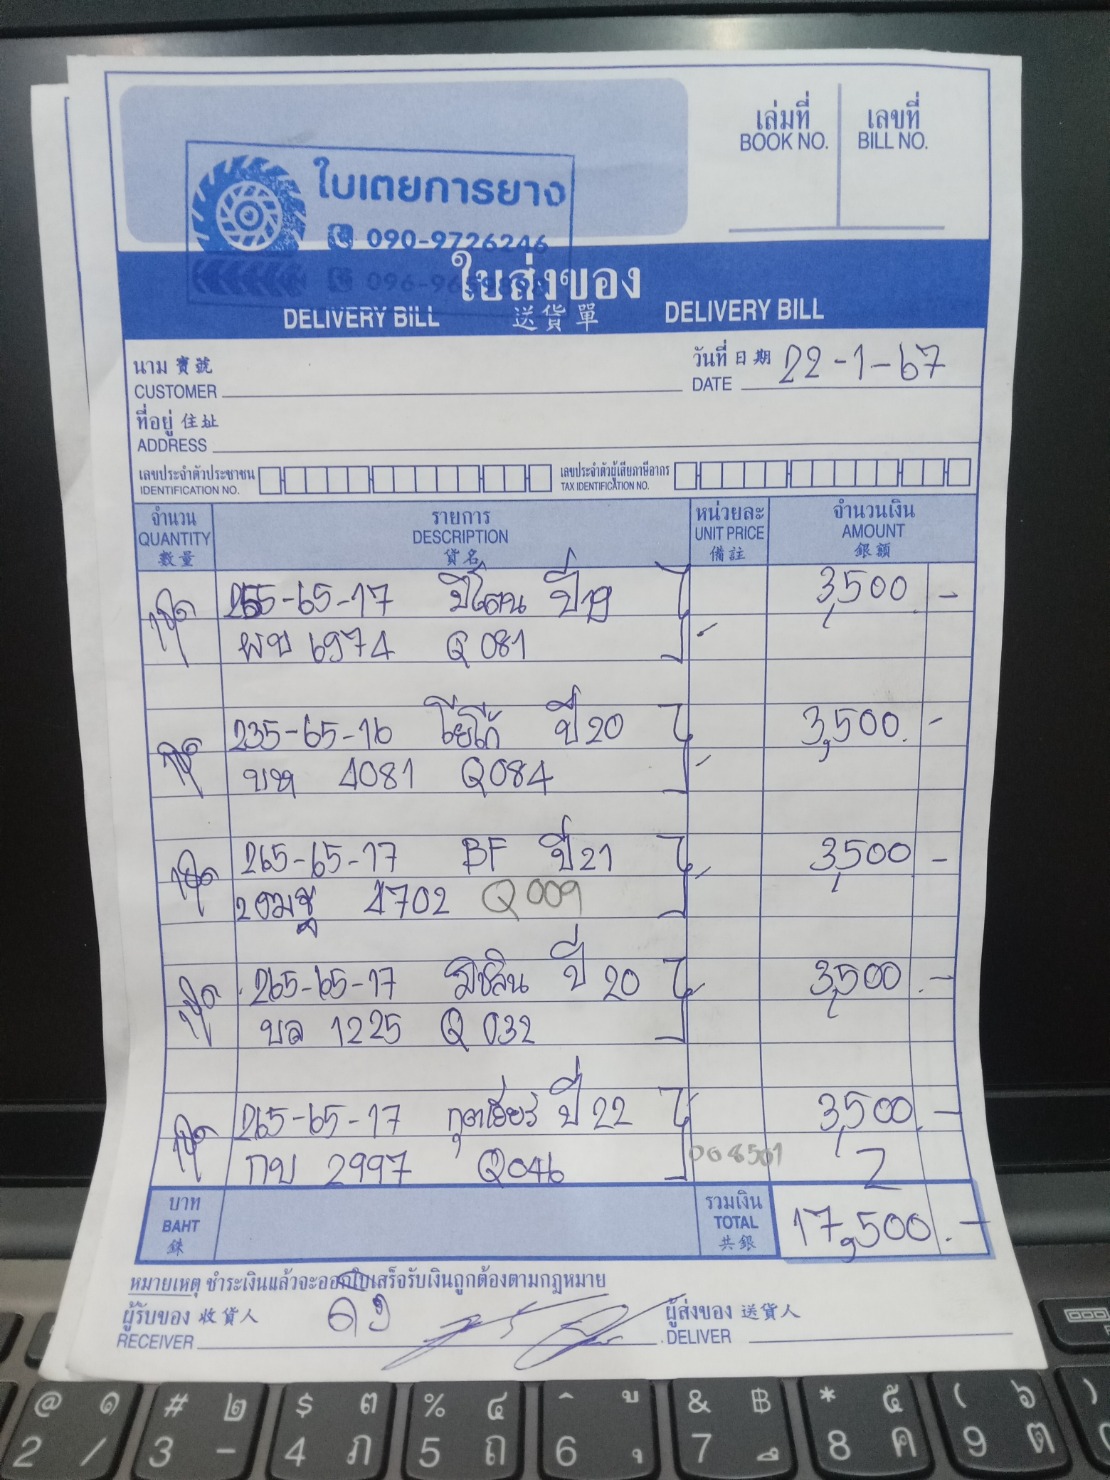 เล่มที่ เลขที่
BOOK NO. BILL NO.
ใบเตยการยาง
090-9726246
ใบส่งของ
DELIVERY BILL 送貨單 DELIVERY BILL
นาม 寶號 วันที่ 日期 22-1-67
CUSTOMER DATE
ที่อยู่ 住址
ADDRESS
เลขประจำตัวประชาชน เลขประจำตัวผู้เสียภาษีอากร
IDENTIFICATION NO. TAX IDENTIFICATION NO.
จำนวน รายการ หน่วยละ จำนวนเงิน
QUANTITY DESCRIPTION UNIT PRICE AMOUNT
數量 貨名 備註 銀額
265-65-17 ปี 19 3,500 -
ผข 6974 Q081
235-65-16 โยโก้ ปี 20 3,500.-
บห 4081 Q084
265-65-17 BF ปี 21 3,500 -
2 4702 Q009
265-65-17 มิชลิน ปี 20 3,500.-
บล 1225 Q032
265-65-17 กูดเยียร์ ปี 22 3,500.-
กบ 2997 Q046
บาท รวมเงิน
BAHT TOTAL 17,500.-
銖 共銀
หมายเหตุ ชำระเงินแล้วจะออกใบเสร็จรับเงินถูกต้องตามกฎหมาย
ผู้รับของ 收貨人 ผู้ส่งของ 送貨人
RECEIVER DELIVER
@ ๑ # ๒ $ ๓ % ๔ ^ ู & ฿ * ๕ ( ๖ )
2 / 3 - 4 ภ 5 ถ 6 ุ 7 ึ 8 ค 9 ต